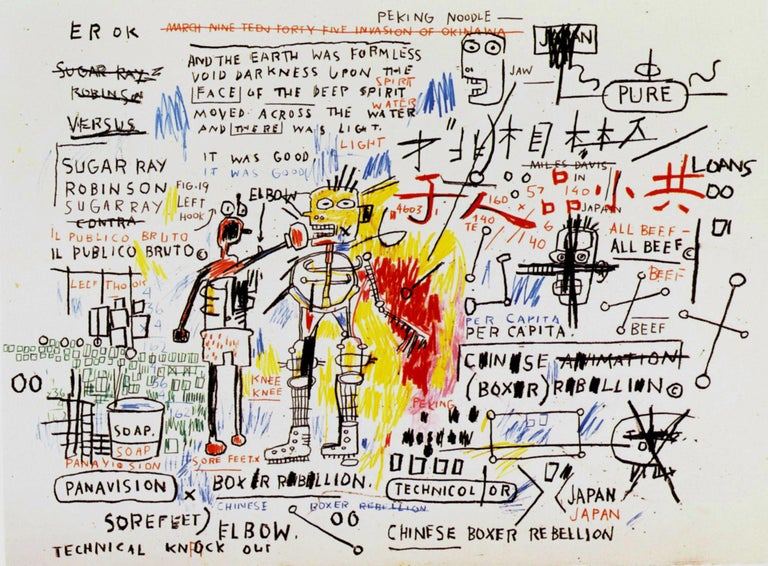 PEKING NOODLE —
MARCH NINE TEEN FORTY FIVE INVASION OF OKINAWA
JAPAN
JAW
PURE
EROK
SUGAR RAY
ROBINSON
VERSUS
AND THE EARTH WAS FORMLESS
VOID DARKNESS UPON THE
SPIRIT
FACE OF THE DEEP SPIRIT
WATER
MOVED ACROSS THE WATER
AND THERE WAS LIGHT.
LIGHT
IT WAS GOOD
IT WAS GOOD
SUGAR RAY
ROBINSON
SUGAR RAY
CONTRA
IL PUBLICO BRUTO
IL PUBLICO BRUTO©
FIG.19
LEFT
HOOK
ELBOW
MILES DAVIS
LOANS
IN
JAPAN
子人品小共
4603
160
57
140
140
6
40
ALL BEEF—
ALL BEEF—
BEEF
BEEF
PER CAPITA
PER CAPITA.
CHINESE ANIMATION
(BOXER) REBELLION©
KNEE
KNEE
PEKING
MOSCOW
SOAP.
SOAP
PANAVISION
SORE FEET.X
PANAVISION
X BOXER REBELLION.
TECHNICOLOR
CHINESE BOXER REBELLION
JAPAN
JAPAN
SOREFEET)
ELBOW.
CHINESE BOXER REBELLION
TECHNICAL KNOCK OUT